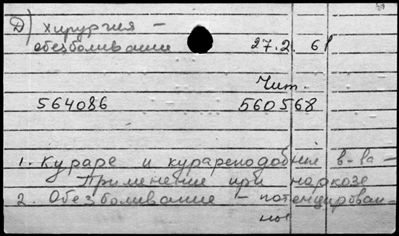 Д) хирургия –
обезболивание 27.2.61
Чит.
564086 560568
1. Кураре и курареподобные в-ва –
Применение при наркозе
2. Обезболивание – потенцирован-
ные